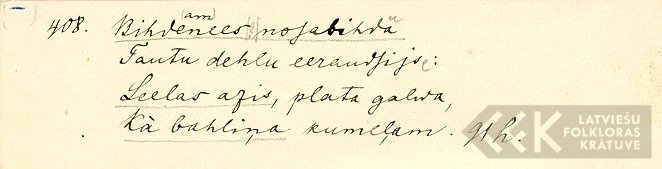 408. Bihdenees (am) nosabihdu
Tautu dehlu eeraudsijse:
Leelas azis, plata galwa,
Kà bahliņa kumeļam. 91 h.
LATVIEŠU
FOLKLORAS
KRĀTUVE